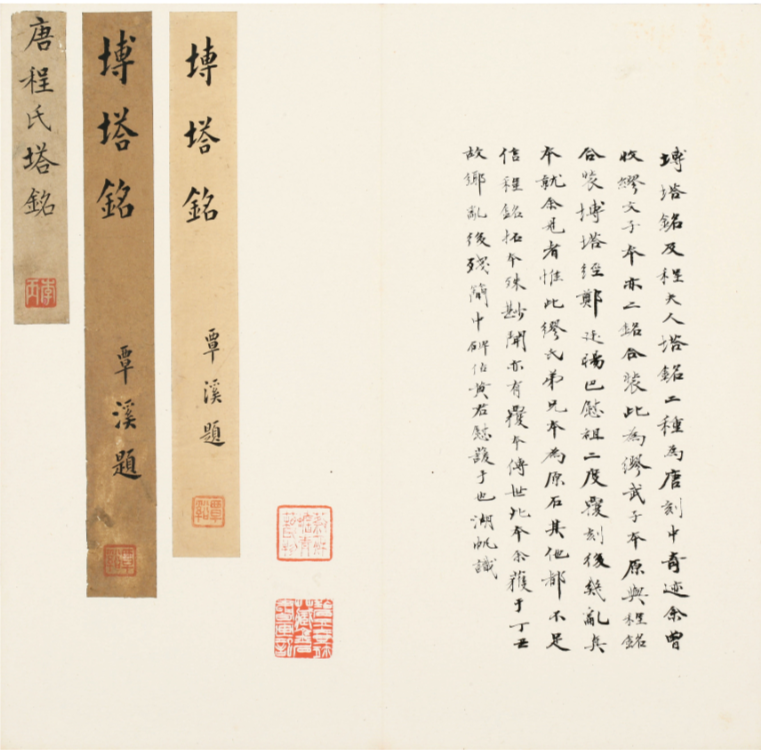 塼塔銘及程夫人塔銘二種為唐刻中奇迹余曾
收繆文子本亦二銘合裝此為繆武子本原與程銘
合裝塼塔經鄭廷暘巴慰祖二度覆刻後幾亂真
本就余見者惟此繆氏弟兄本為原石其他都不足
信程銘拓本殊尠聞亦有覆本傳世此本余獲于丁丑
故鄉亂後殘簡中碑估黃君慰萱手也湖帆識
塼塔銘
覃溪題
塼塔銘
覃溪題
唐程氏塔銘